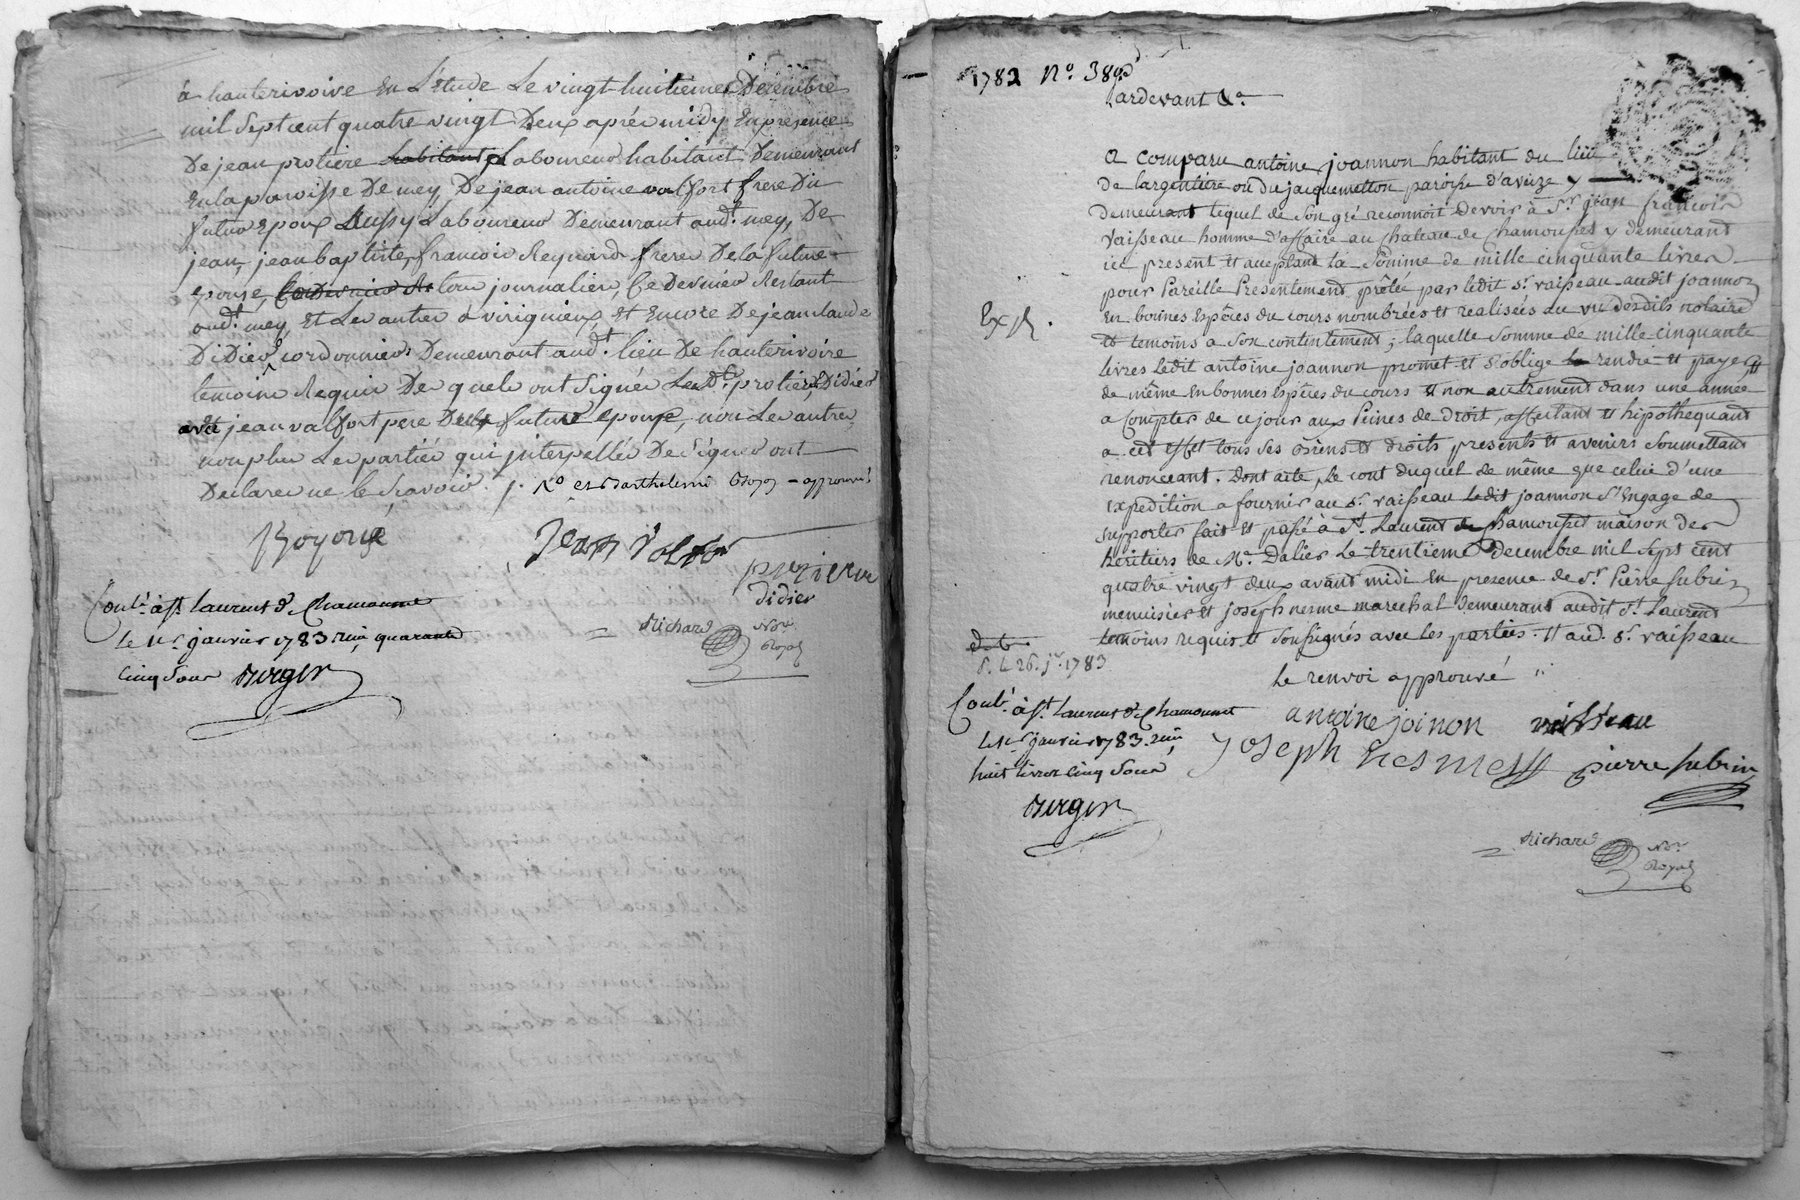 à hauterivoire En L'Etude Le vingt huitieme Decembre
mil Sept cent quatre vingt Deux aprés midy En presence
De jean protiere habitant Laboureur habitant Demeurant
En la paroisse De mey, De jean antoine valfort frere Du
futur Epoux Aussy Laboureur Demeurant aud.t mey, De
jean, jean baptiste, francois Reynard frere De la future
epouse, Ce Dernier tous journalier, Ce Dernier Restant
aud.t mey, Et Les autres à virigneux, Et Encore De jean claude
Didier cordonnier Demeurant aud.t lieu De hauterivoire
temoins Requis De quels ont Signés Les d.ts protiere, Didier
avec jean valfort pere De future epouse, non Les autres
non plus Les parties qui jnterpellés De Signer ont
Declarer ne le Sçavoir. /. et Barthelemi approuvé
Jean
Didier
Cont.é à St. Laurent de Chamousset
Le janvier 1783. Reçu quarante
cinq Sous Berger
Richard
No.re
Royal
1782 N.o 389
Pardevant &a
A comparu antoine joannon habitant du lieu
de largentiere ou du jacquemetton paroisse d'aveize y
demeurant lequel de Son gré reconnoit Devoir à S.r jean francois
Vaisseau homme d'affaire au chateau de Chamousset y demeurant
ici present et acceptant la Somme de mille cinquante livres
pour Pareille Presentement prêtée par ledit S.r vaisseau audit joannon
En bonnes Espéces du cours nombrées et realisées au vu desdits notaire
et temoins a Son contentement; laquelle Somme de mille cinquante
livres Ledit antoine joannon promet et S'oblige rendre et payer
de même En bonnes Espéces du cours et non autrement dans une année
a compter de ce jour aux Peines de Droit, affectant et hipothequant
a cet effet tous Ses biens et droits presents et avenirs Soumettant
renonceant. Dont acte, Le cout duquel de même que celui d'une
Expedition a fournir au S.r vaisseau Ledit joannon S'Engage de
Supporter fait et passé à St. Laurent de Chamousset maison des
héritiers de M.e Dalier Le trentieme Decembre mil Sept cent
quatre vingt deux avant midi En presence de S.r Pierre Subrin
menuisier et joseph nesme marechal Demeurant audit St. Laurent
temoins requis et Soussignés avec les parties. Et aud. S.r vaisseau
Le renvoi approuvé
Exp.
1783
antoine joinon vaisseau
Joseph Nesme pierre Subrin
Cont.é à St. Laurent de Chamousset
Le janvier 1783. Reçu
huit livres cinq Sous
Berger
Richard
No.re
Royal